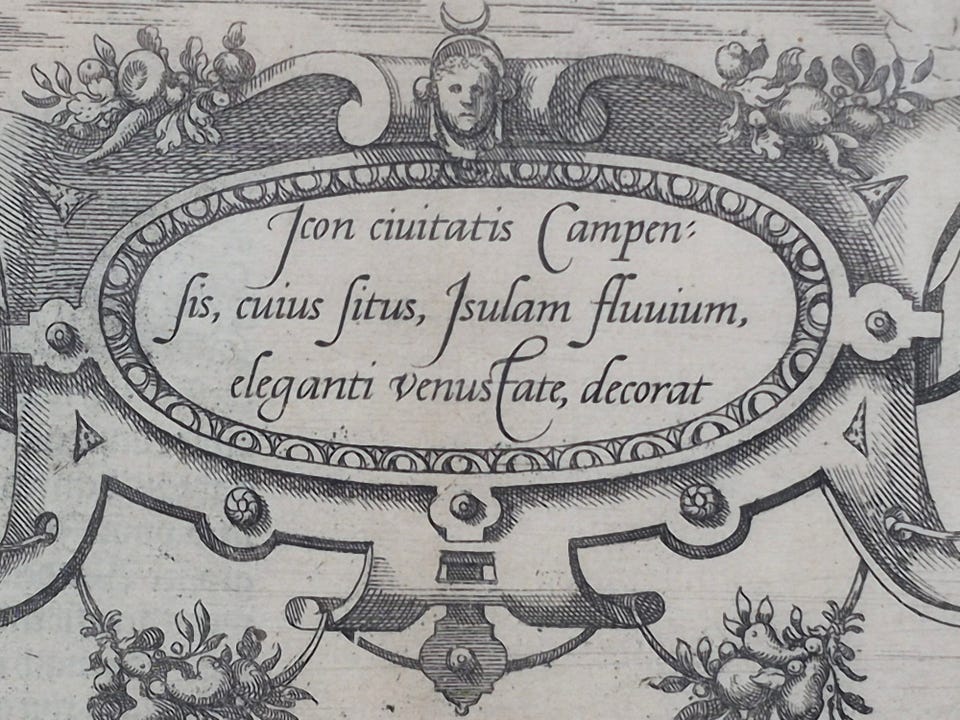 Icon ciuitatis Campen:
sis, cuius situs, Isulam fluuium,
eleganti venustate, decorat